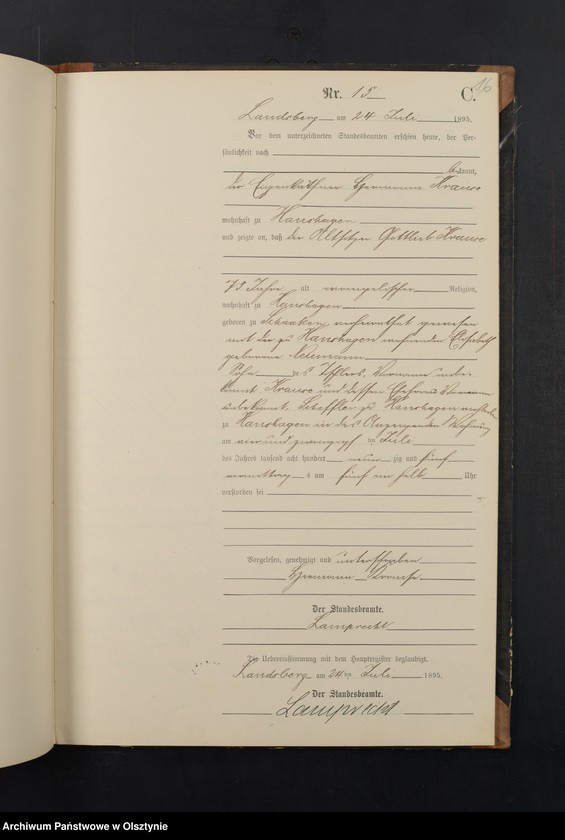 16
Nr. 15 C.
Landsberg am 24 Juli 1895.
Vor dem unterzeichneten Standesbeamten erschien heute, der Per-
sönlichkeit nach
kannt,
der Eigenkäthner Hermann Krause
wohnhaft zu Hanshagen
und zeigte an, daß der Altsitzer Gottlieb Krause
73 Jahre alt evangelischer Religion,
wohnhaft zu Hanshagen
geboren zu verheirathet gewesen
mit der zu Hanshagen wohnenden Elisabeth
geborene Neumann
Sohn des Vorname unbe-
kannt Krause und dessen Ehefrau Vorname
unbekannt, Scheffler zu Hanshagen
zu Hanshagen in des Anzeigenden Wohnung
am vier und zwanzigsten Juli
des Jahres tausend acht hundert neun zig und fünf
vormittags um fünf ein halb Uhr
verstorben sei
Vorgelesen, genehmigt und unterschrieben
Hermann Krause
Der Standesbeamte.
Lamprecht
Die Uebereinstimmung mit dem Hauptregister beglaubigt.
Landsberg am 24 ten Juli 1895.
Der Standesbeamte.
Lamprecht
Archiwum Państwowe w Olsztynie